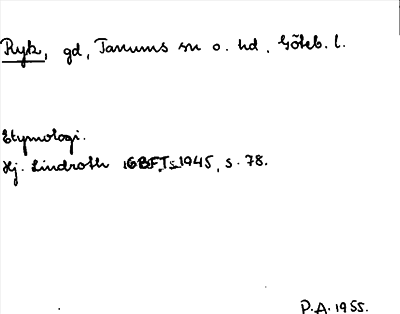 Ryk, gd, Tanums sn o. hd, Göteb. l.
Etymologi.
Hj. Lindroth i GBFT 1945, s. 78.
P.A. 1955.